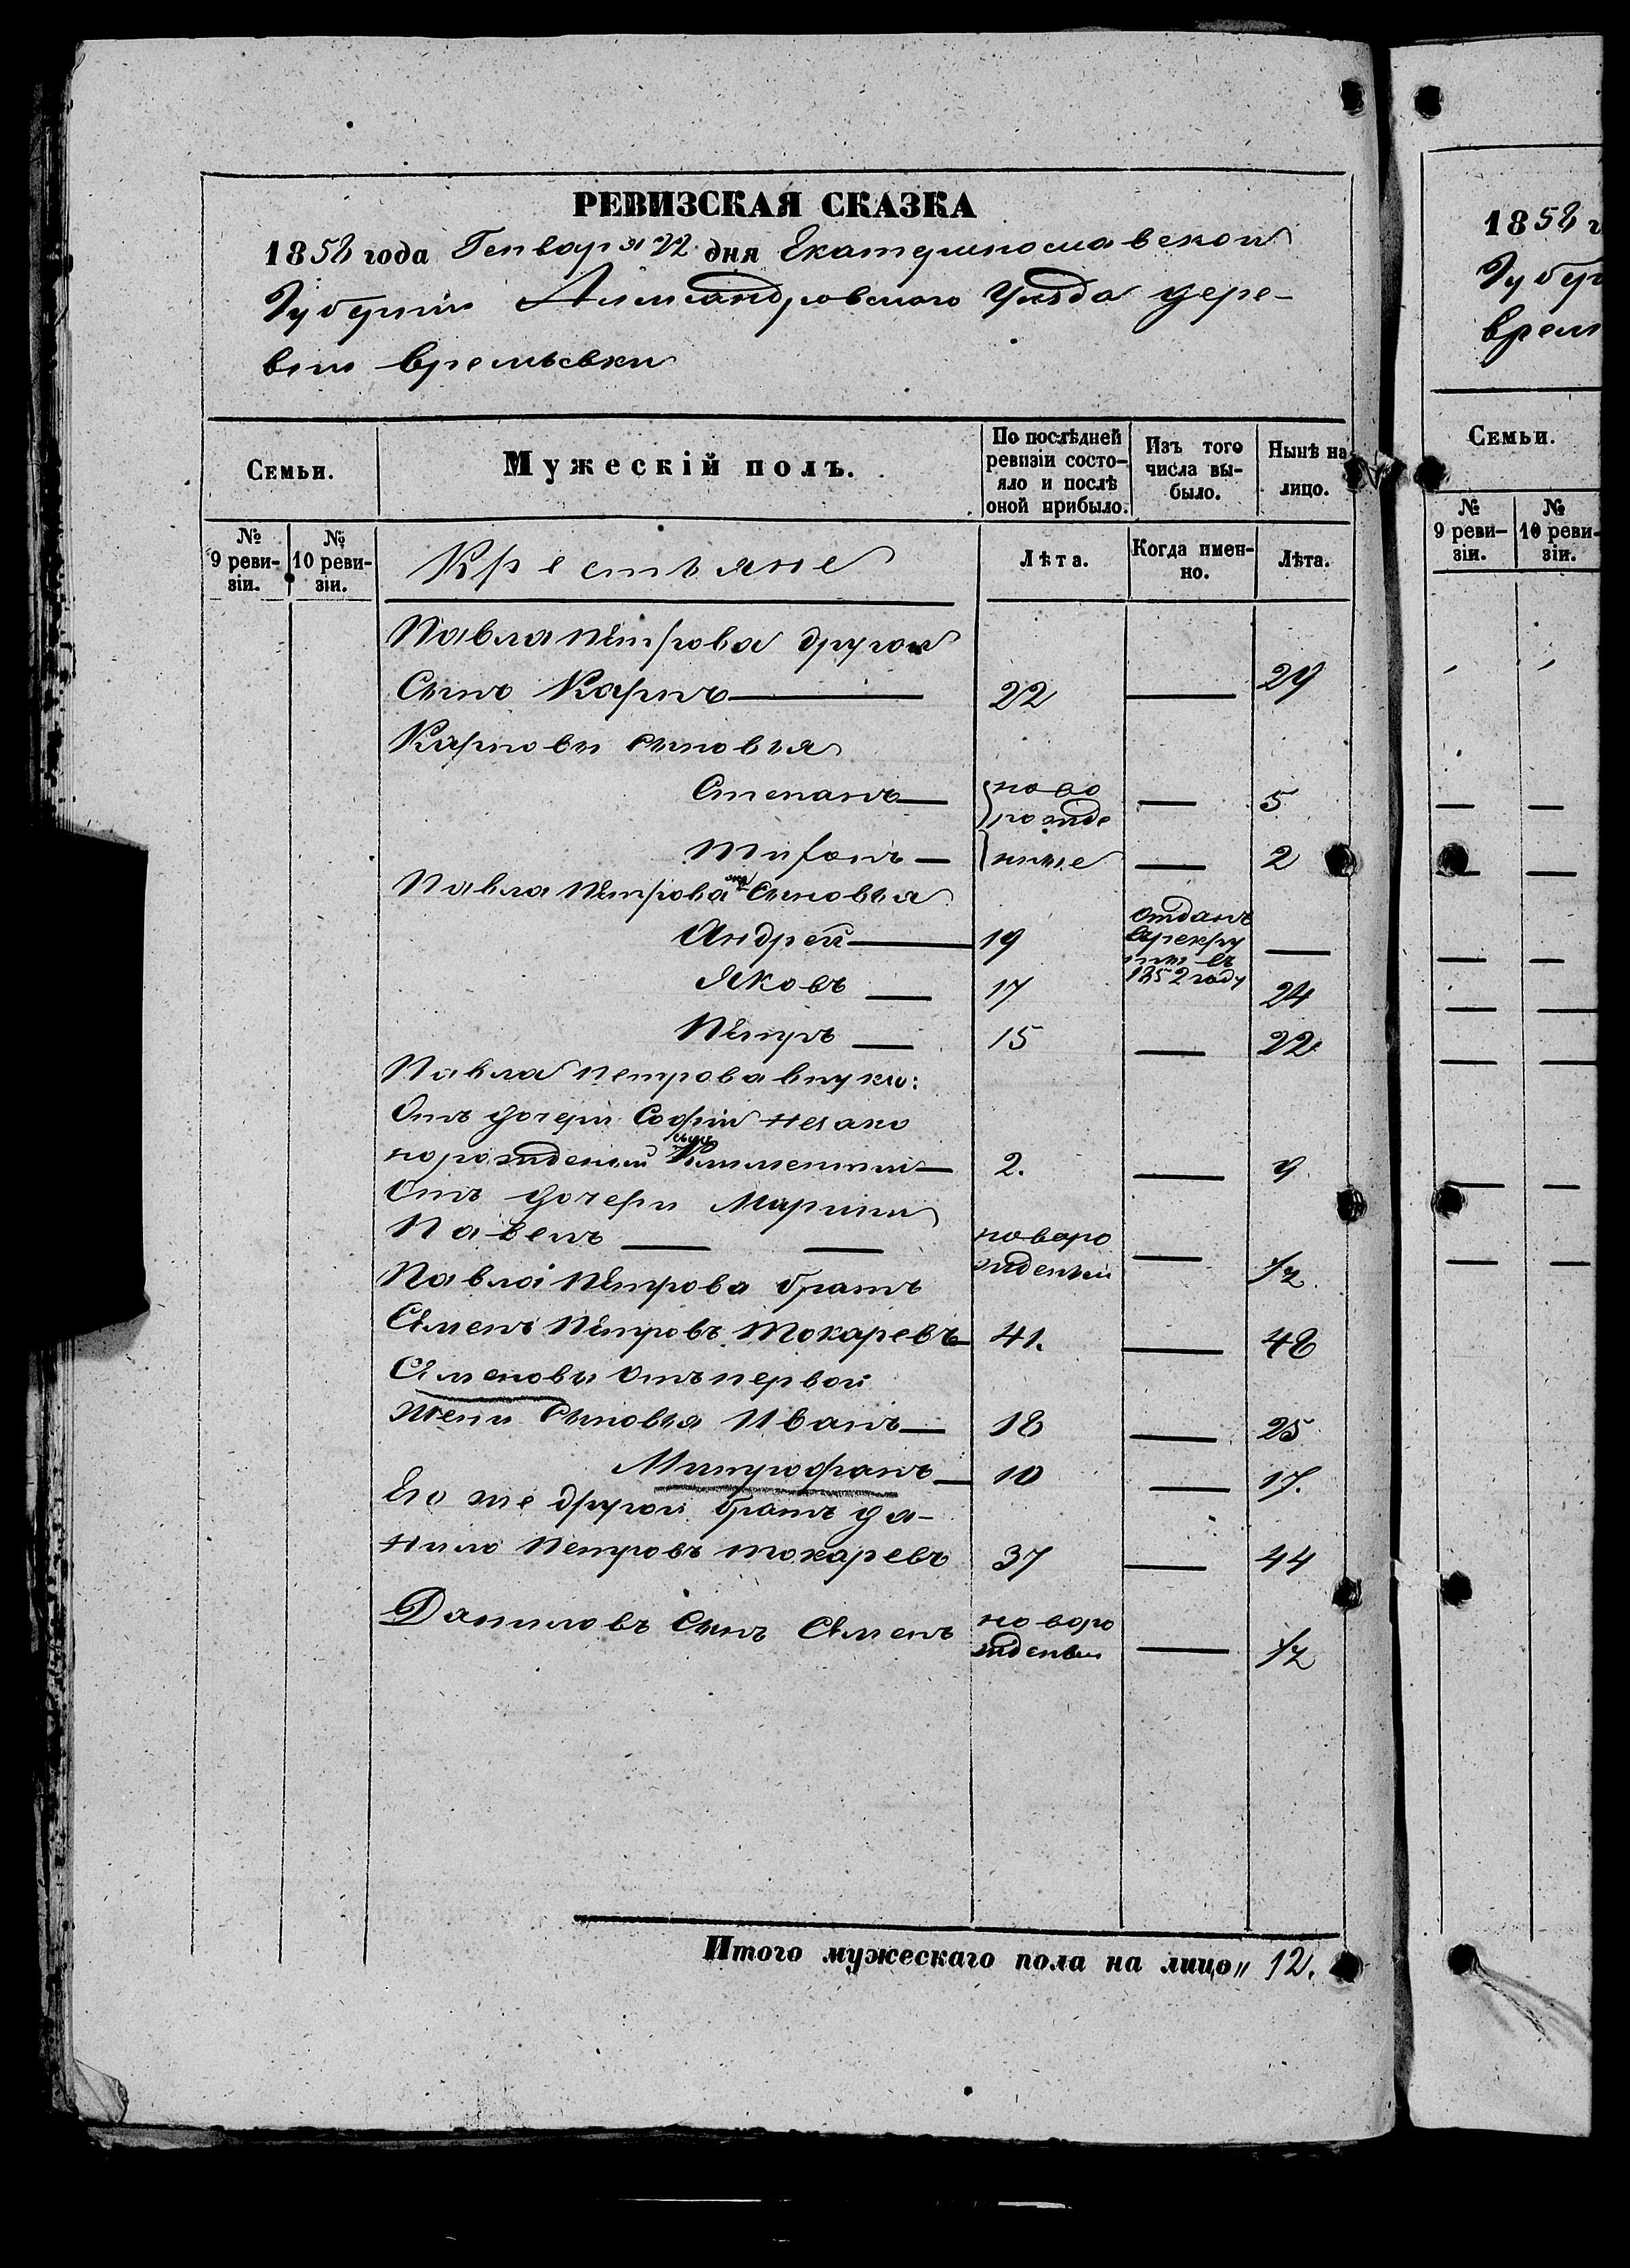 РЕВИЗСКАЯ СКАЗКА
1858 года Генваря 22 дня Екатеринославской
Губернии Александровского Уезда дере-
вни Времьевки
Семьи.
Мужескій полъ.
По послѣдней ревизіи состо-яло и послѣ оной прибыло.
Изъ того числа вы-было.
Нынѣ на лицо.
№ 9 реви-зіи.
№ 10 реви-зіи.
Крестьяне
Лѣта.
Когда имен-но.
Лѣта.
Павла Петрова другой
Сынъ Карпъ 22 — 29
Карповы сыновья
Степанъ — ново рожде — 5
Тифонъ — ные — 2
Павла Петрова еще Сыновья
Андрей — 19 отданъ в рекруты въ 1852 году —
Яковъ — 17 24
Петръ — 15 — 22
Павла Петрова внуки:
Отъ дочери Софіи незако
норожденный Климентий — 2. — 9
Отъ дочери Марины
Павелъ — — новоро жденый — 1/2
Павла Петрова братъ
Семенъ Петровъ Токаревъ — 41. — 48
Семеновы отъ первой
жены Сыновья Иванъ — 18 — 25
Митрофанъ — 10 — 17.
Его же другой братъ да-
нило Петровъ токаревъ 37 — 44
Даниловъ Сынъ Семенъ новоро жденый — 1/2
Итого мужескаго пола на лицо 12.
1858 г
Губер
врем
Семьи.
№ 9 реви-зіи.
№ 10 реви-зіи.